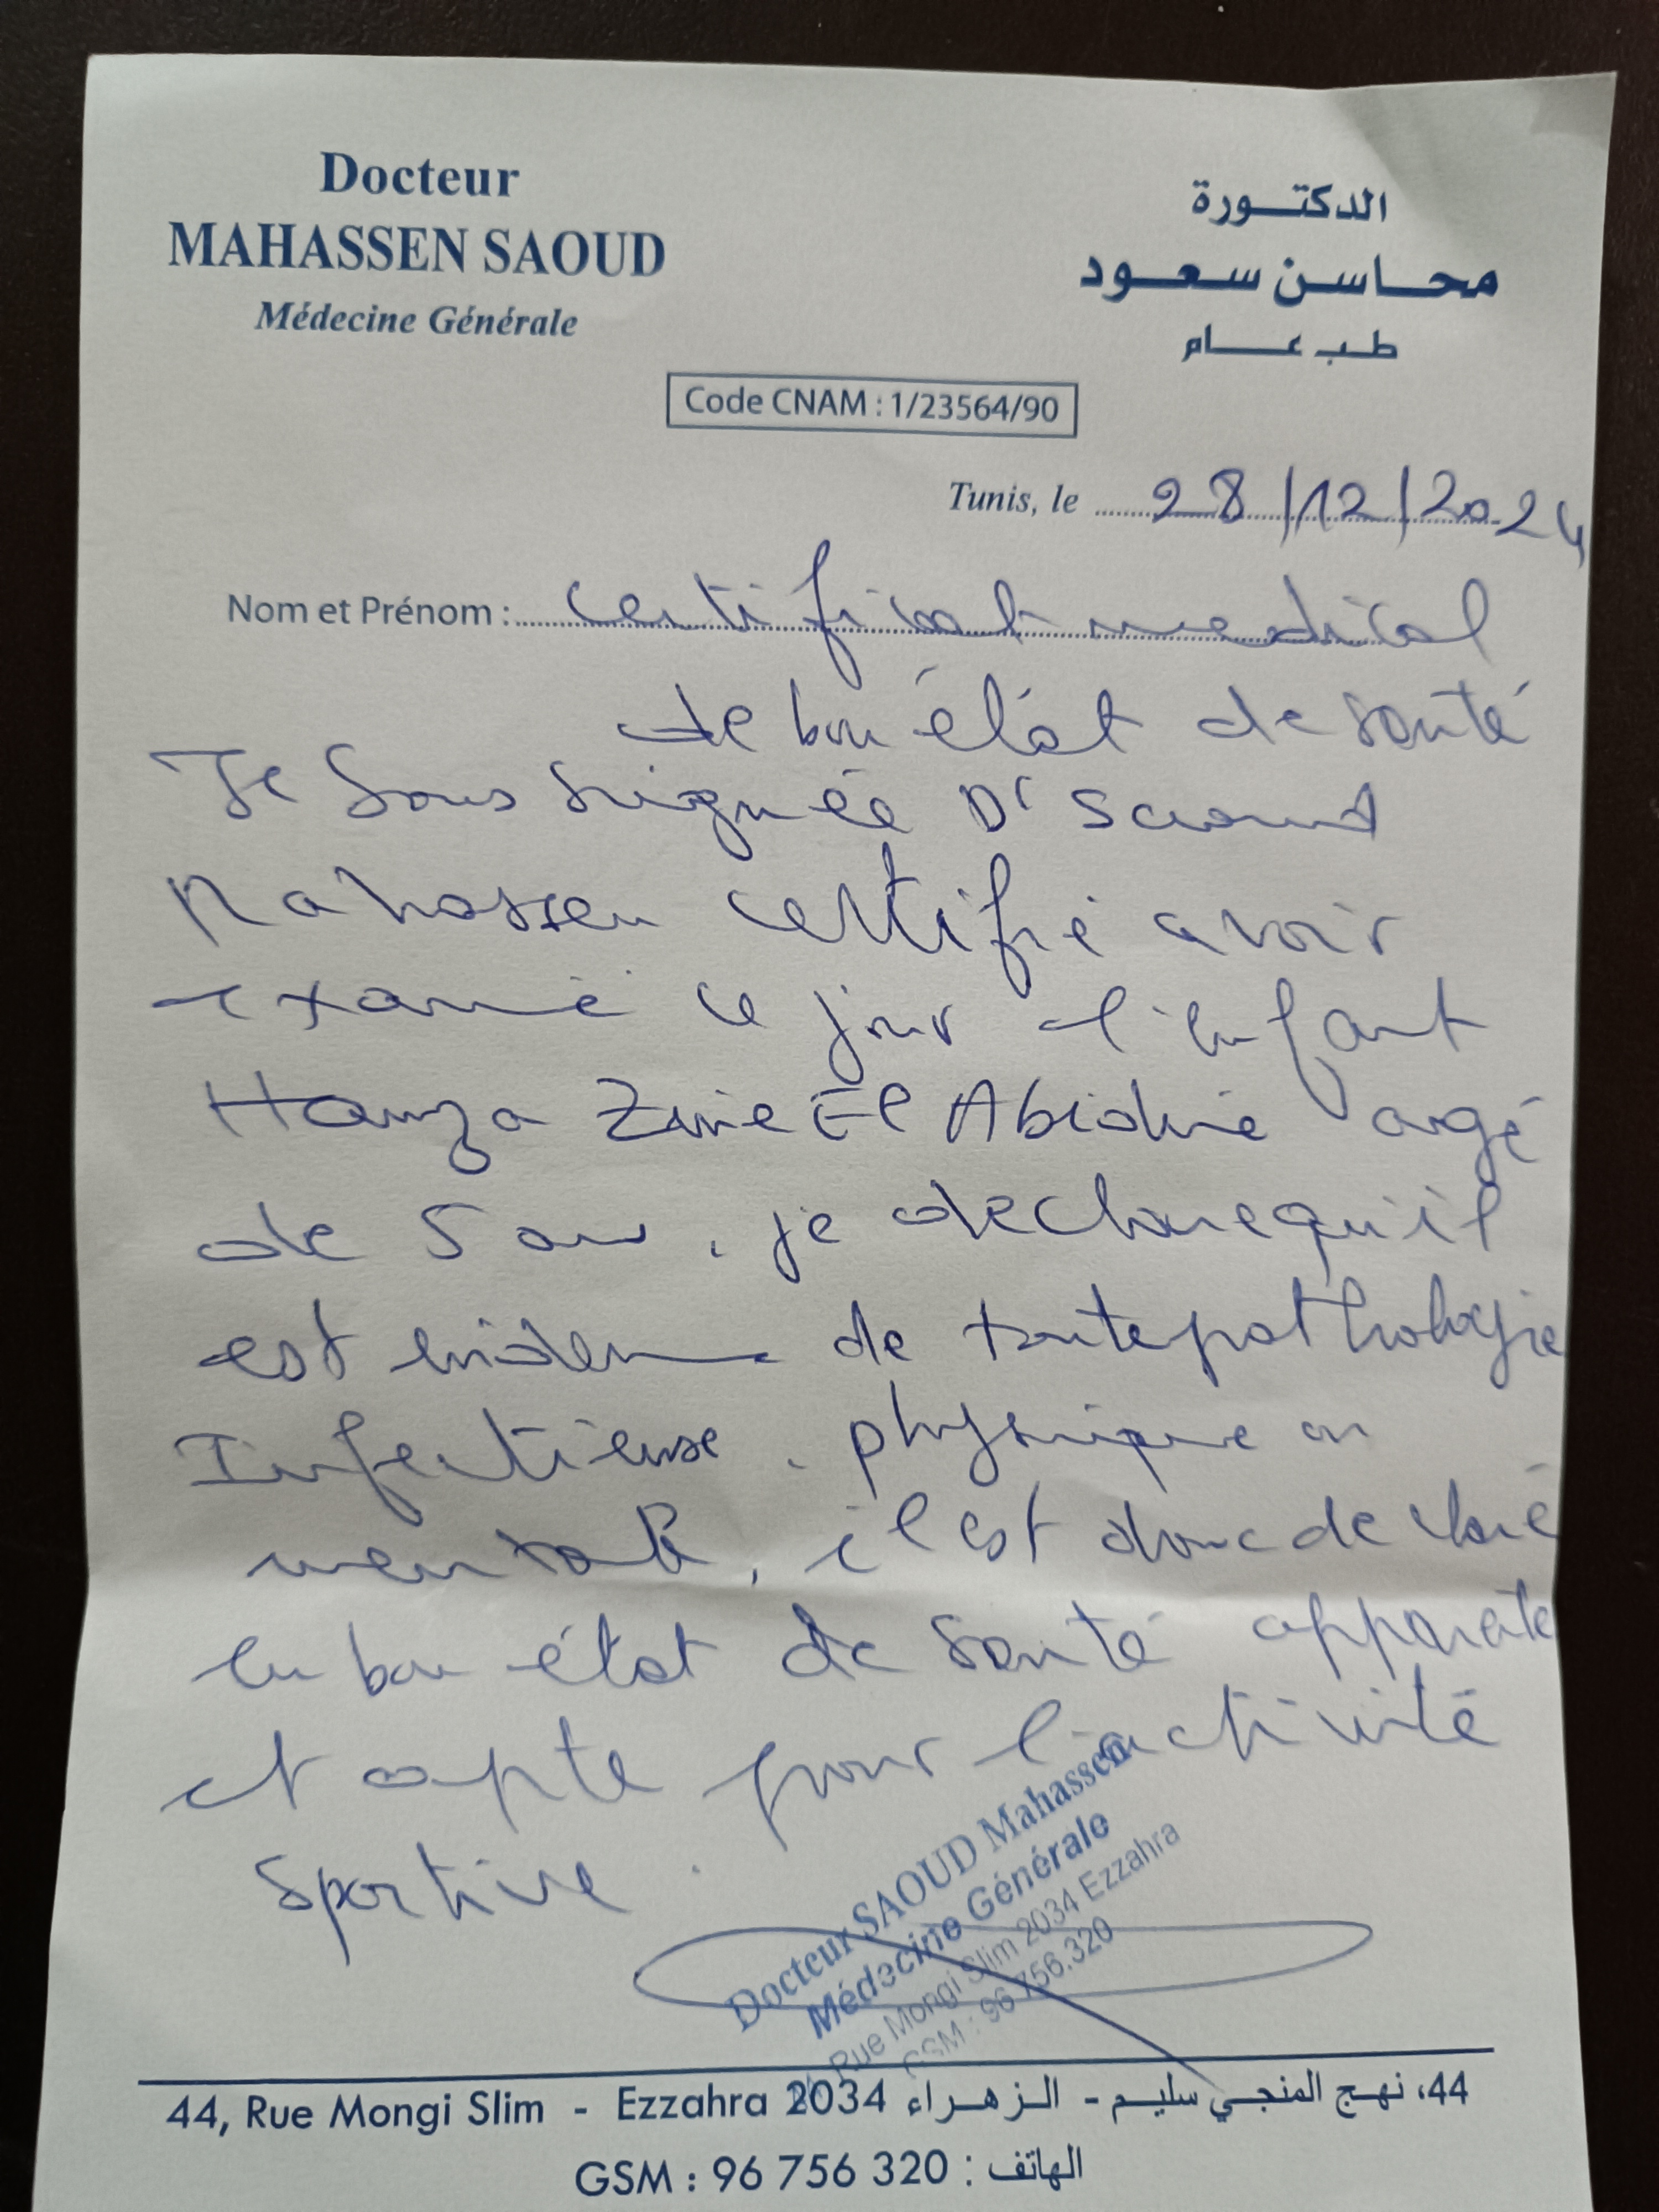 Docteur
MAHASSEN SAOUD
Médecine Générale
الدكتورة
محاسن سعود
طب عام
Code CNAM : 1/23564/90
Tunis, le 28/12/2024
Nom et Prénom : Certificat medical
de bon état de santé
Je Sous Signée Dr Saoud
Mahassen certifie avoir
examé ce jour l'enfant
Hamza Zine El Abidine agé
de 5 ans. je declare qu'il
est de toute pathologie
Infectieuse. physique ou
mentale, il est donc declaré
en bon état de santé apparente
et apte pour l'activité
Sportive.
Docteur SAOUD Mahassen
Médecine Générale
Rue Mongi Slim 2034 Ezzahra
GSM : 96 756.320
44, Rue Mongi Slim - Ezzahra 2034 44، نهج المنجي سليم - الزهراء
GSM : 96 756 320 : الهاتف